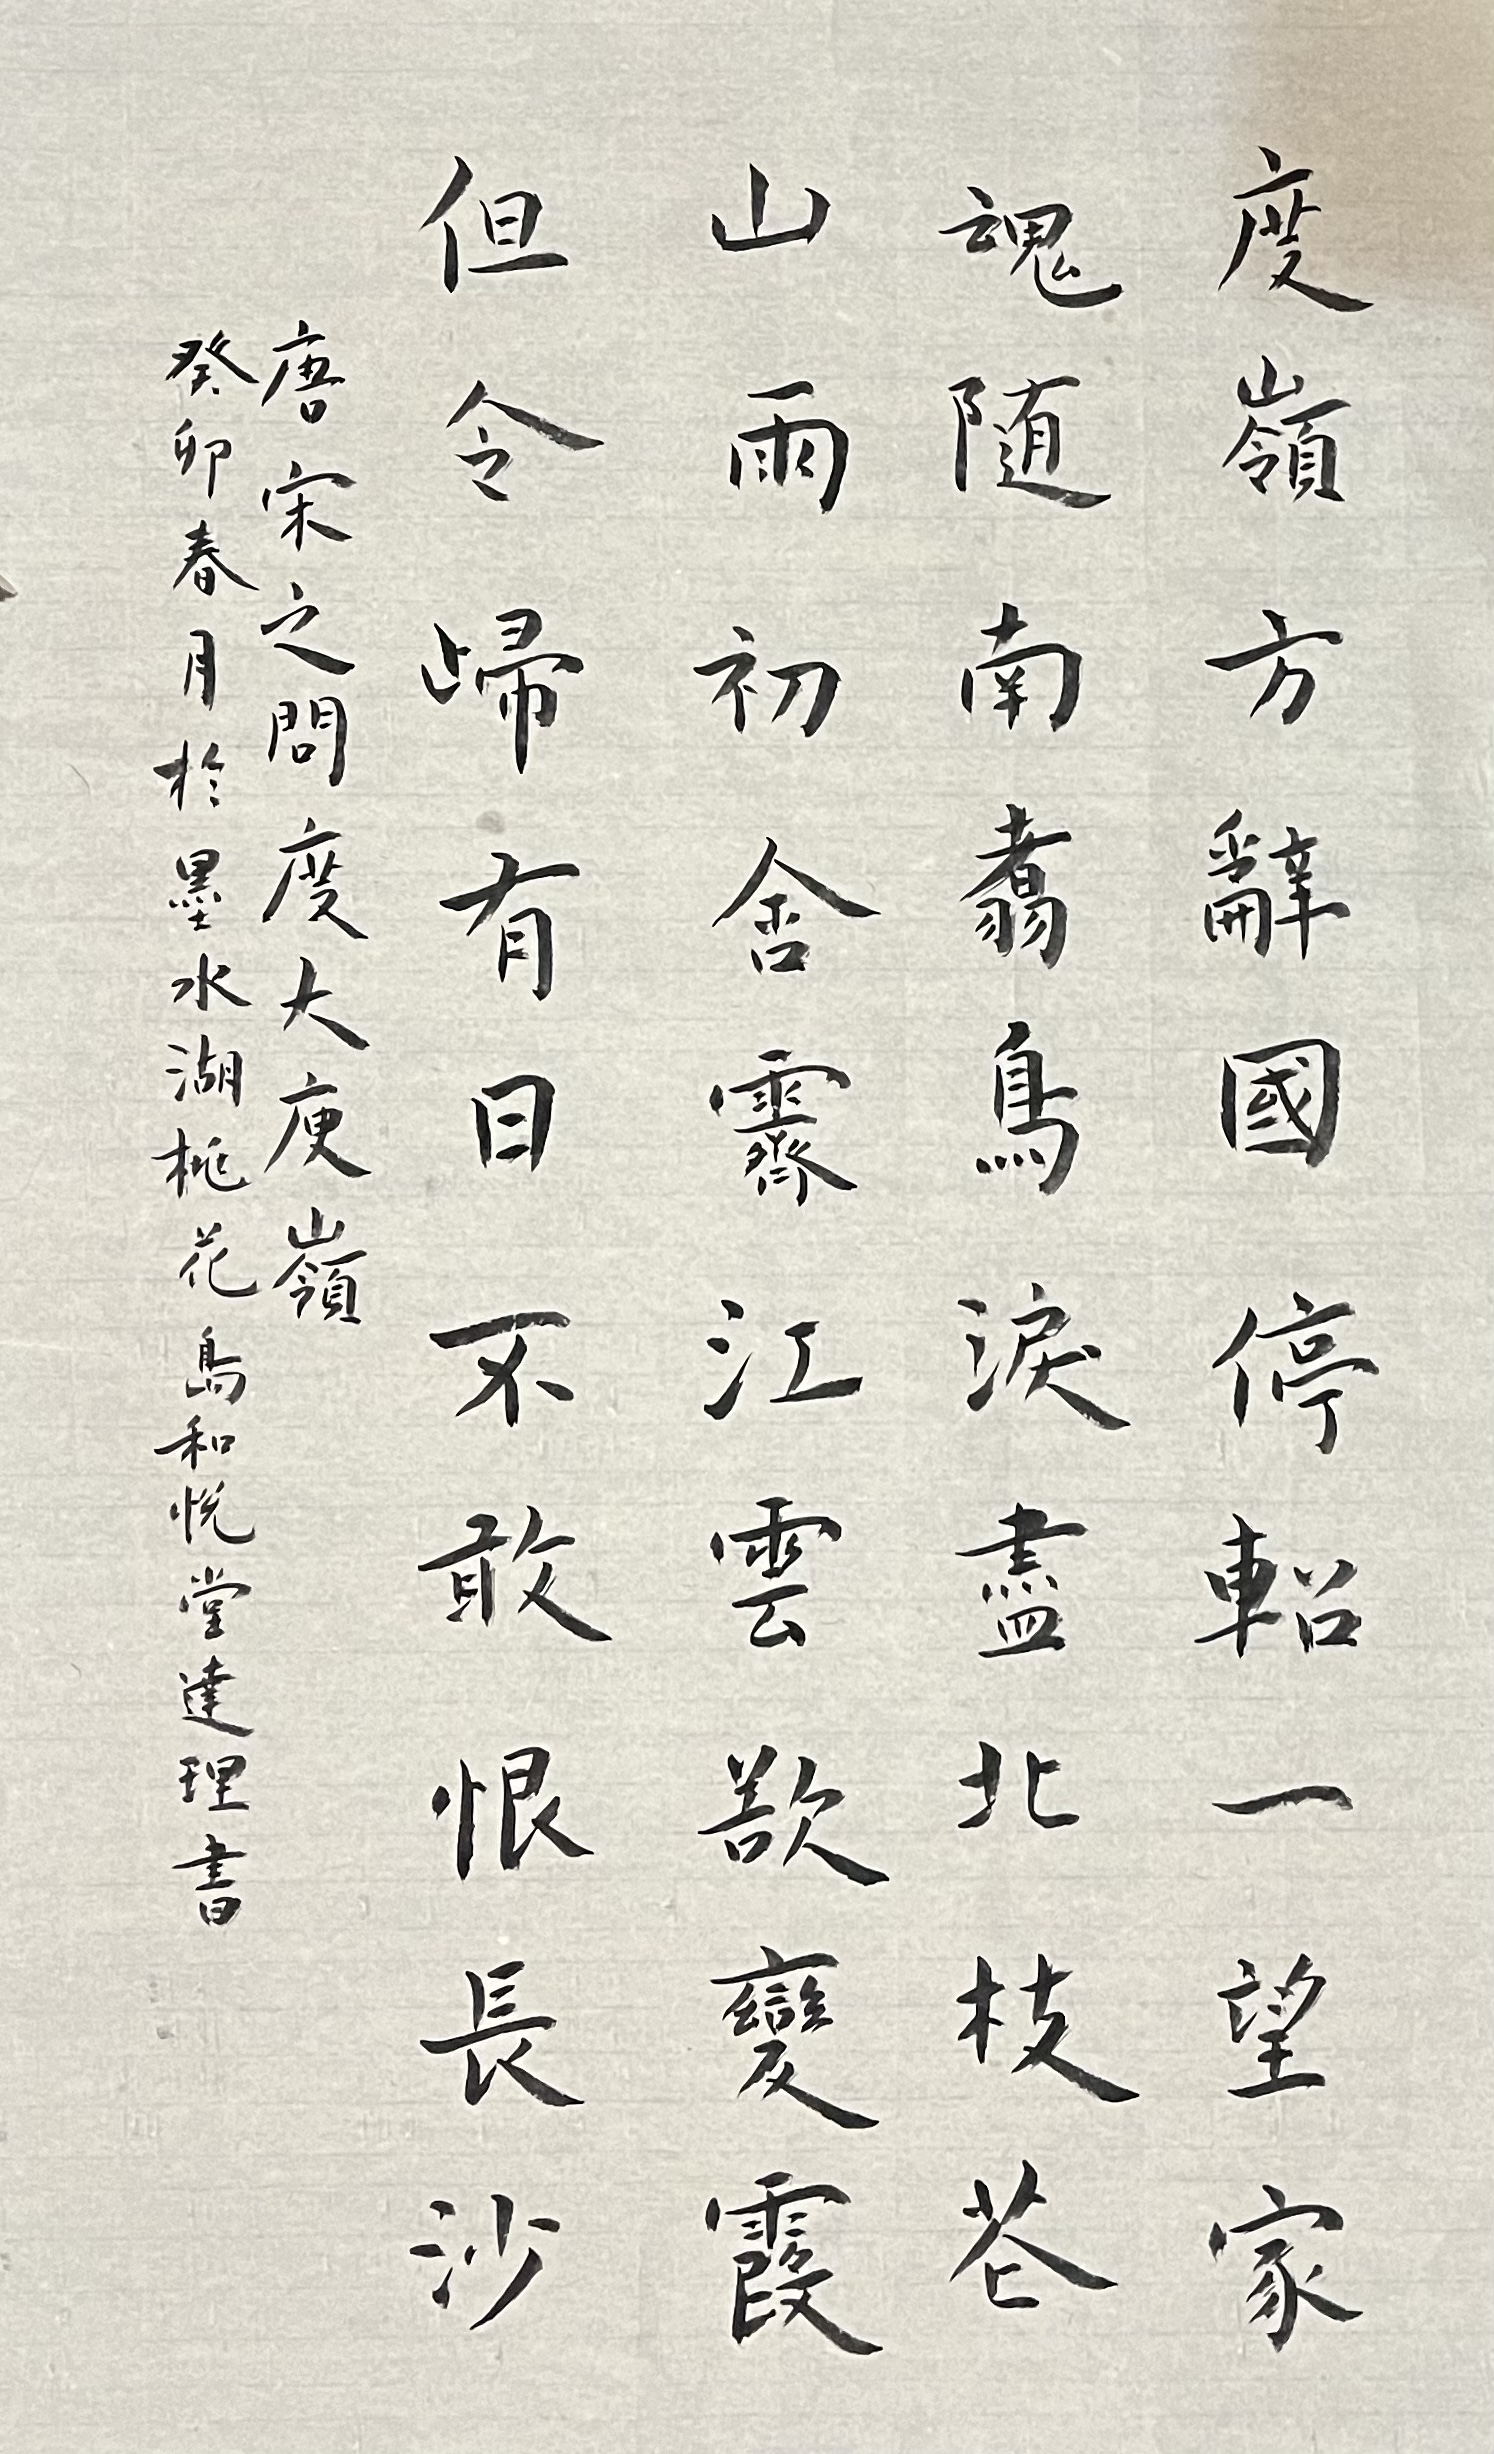 度嶺方辭國停軺一望家
魂随南翥鳥淚盡北枝花
山雨初含霽江雲欲變霞
但令歸有日不敢恨長沙
唐宋之問度大庾嶺
癸卯春月於墨水湖桃花島和悅堂達理書